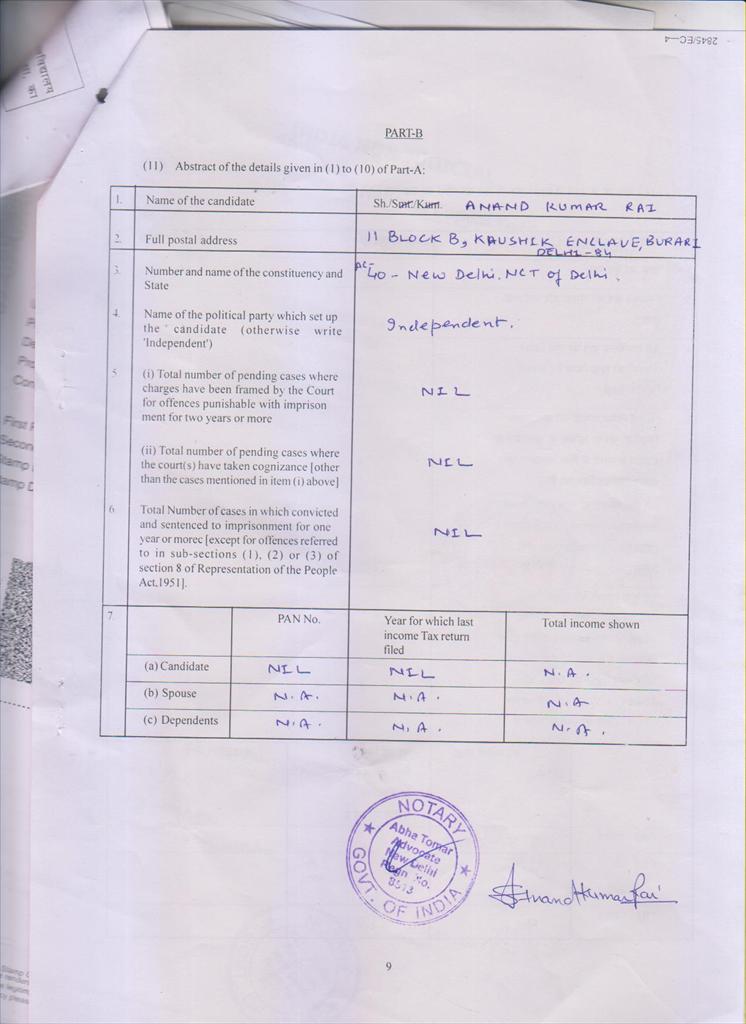 2845/EC—4
PART-B
(11) Abstract of the details given in (1) to (10) of Part-A:
1. Name of the candidate Sh./Smt./Kum. ANAND KUMAR RAI
2. Full postal address 11 BLOCK B, KAUSHIK ENCLAVE, BURARI
DELHI-84
3. Number and name of the constituency and
State
AC-40 - New Delhi. NCT of Delhi.
4. Name of the political party which set up
the candidate (otherwise write
'Independent')
Independent.
5 (i) Total number of pending cases where
charges have been framed by the Court
for offences punishable with imprison
ment for two years or more
NIL
(ii) Total number of pending cases where
the court(s) have taken cognizance [other
than the cases mentioned in item (i) above]
NIL
6 Total Number of cases in which convicted
and sentenced to imprisonment for one
year or morec [except for offences referred
to in sub-sections (1), (2) or (3) of
section 8 of Representation of the People
Act,1951].
NIL
7. PAN No. Year for which last
income Tax return
filed
Total income shown
(a) Candidate NIL NIL N.A.
(b) Spouse N.A. N.A. N.A
(c) Dependents N.A. N.A. N.A.
NOTARY
Abha Tomar
Advocate
New Delhi
Regn No.
8513
GOVT. OF INDIA
Anand Kumar Rai
9